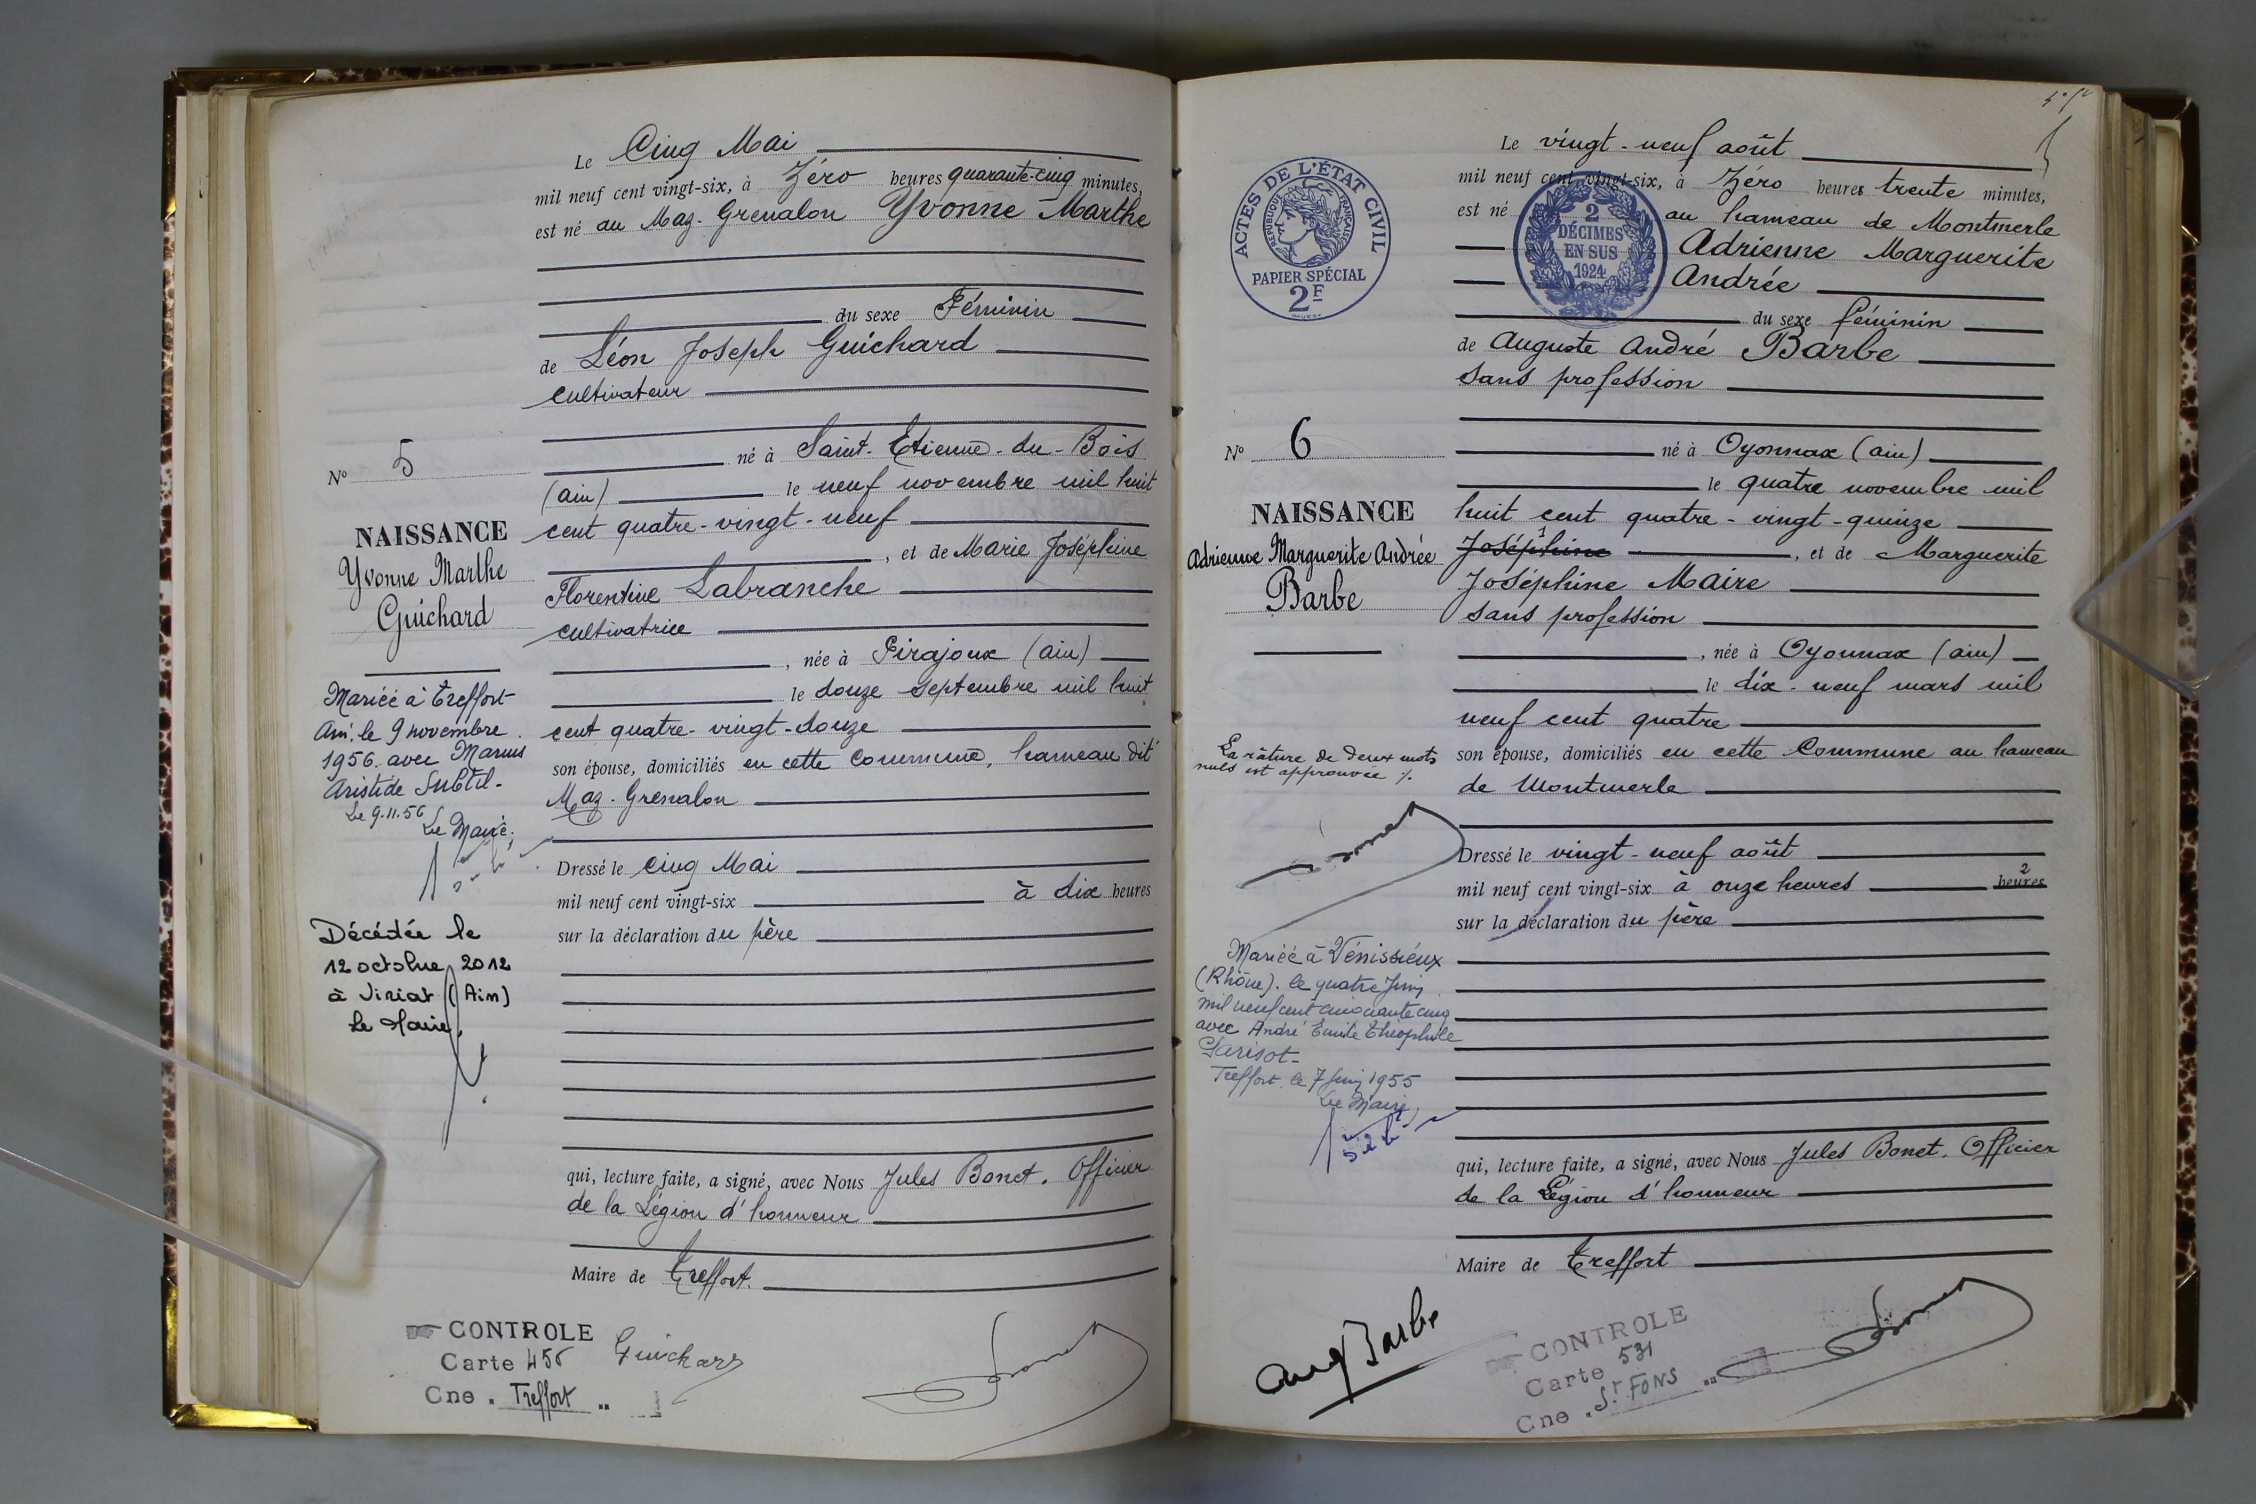 Le Cinq Mai
mil neuf cent vingt-six, à Zéro heures quarante-cinq minutes,
est né au Maz-Grenalon Yvonne Marthe
du sexe Féminin
de Léon Joseph Guichard
cultivateur
né à Saint-Etienne-du-Bois
(ain) le neuf novembre mil huit
cent quatre-vingt-neuf
, et de Marie Joséphine
Florentine Labranche
cultivatrice
, née à Pirajoux (ain)
le douze septembre mil huit
cent quatre-vingt-douze
son épouse, domiciliés en cette Commune, hameau dit
Maz-Grenalon
Dressé le cinq Mai
mil neuf cent vingt-six à dix heures
sur la déclaration du père
qui, lecture faite, a signé, avec Nous Jules Bonet. Officier
de la Légion d'honneur
Maire de Treffort.
No 5
NAISSANCE
Yvonne Marthe
Guichard
Mariée à Treffort
Ain. le 9 novembre
1956. avec Marius
Aristide Subtil-
Le 9.11.56
Le Maire.
Décédée le
12 octobre 2012
à Viriat (Ain)
Le Maire,
CONTROLE
Carte 456
Cne . Treffort
Guichard
ACTES DE L'ÉTAT CIVIL
RÉPUBLIQUE FRANÇAISE
PAPIER SPÉCIAL
2F
2
DÉCIMES
EN SUS
1924
Le vingt-neuf août
mil neuf cent vingt-six, à Zéro heures trente minutes,
est né au hameau de Montmerle
Adrienne Marguerite
Andrée
du sexe féminin
de Auguste André Barbe
sans profession
né à Oyonnax (ain)
le quatre novembre mil
huit cent quatre-vingt-quinze
Joséphine 1, et de Marguerite
Joséphine Maire
sans profession
, née à Oyonnax (ain)
le dix-neuf mars mil
neuf cent quatre
son épouse, domiciliés en cette Commune au hameau
de Montmerle
Dressé le vingt-neuf août
mil neuf cent vingt-six à onze heures heures 2
sur la déclaration du père
qui, lecture faite, a signé, avec Nous Jules Bonet. Officier
de la Légion d'honneur
Maire de Treffort
No 6
NAISSANCE
Adrienne Marguerite Andrée
Barbe
La râture de deux mots
nuls est approuvée
Bonet
Mariée à Vénissieux
(Rhône). le quatre Juin
mil neuf cent cinquante cinq
avec André Emile Théophile
Parisot-
Treffort. le 7 Juin 1955
Le Maire,
Aug Barbe
CONTROLE
Carte 531
Cne . St FONS
Bonet